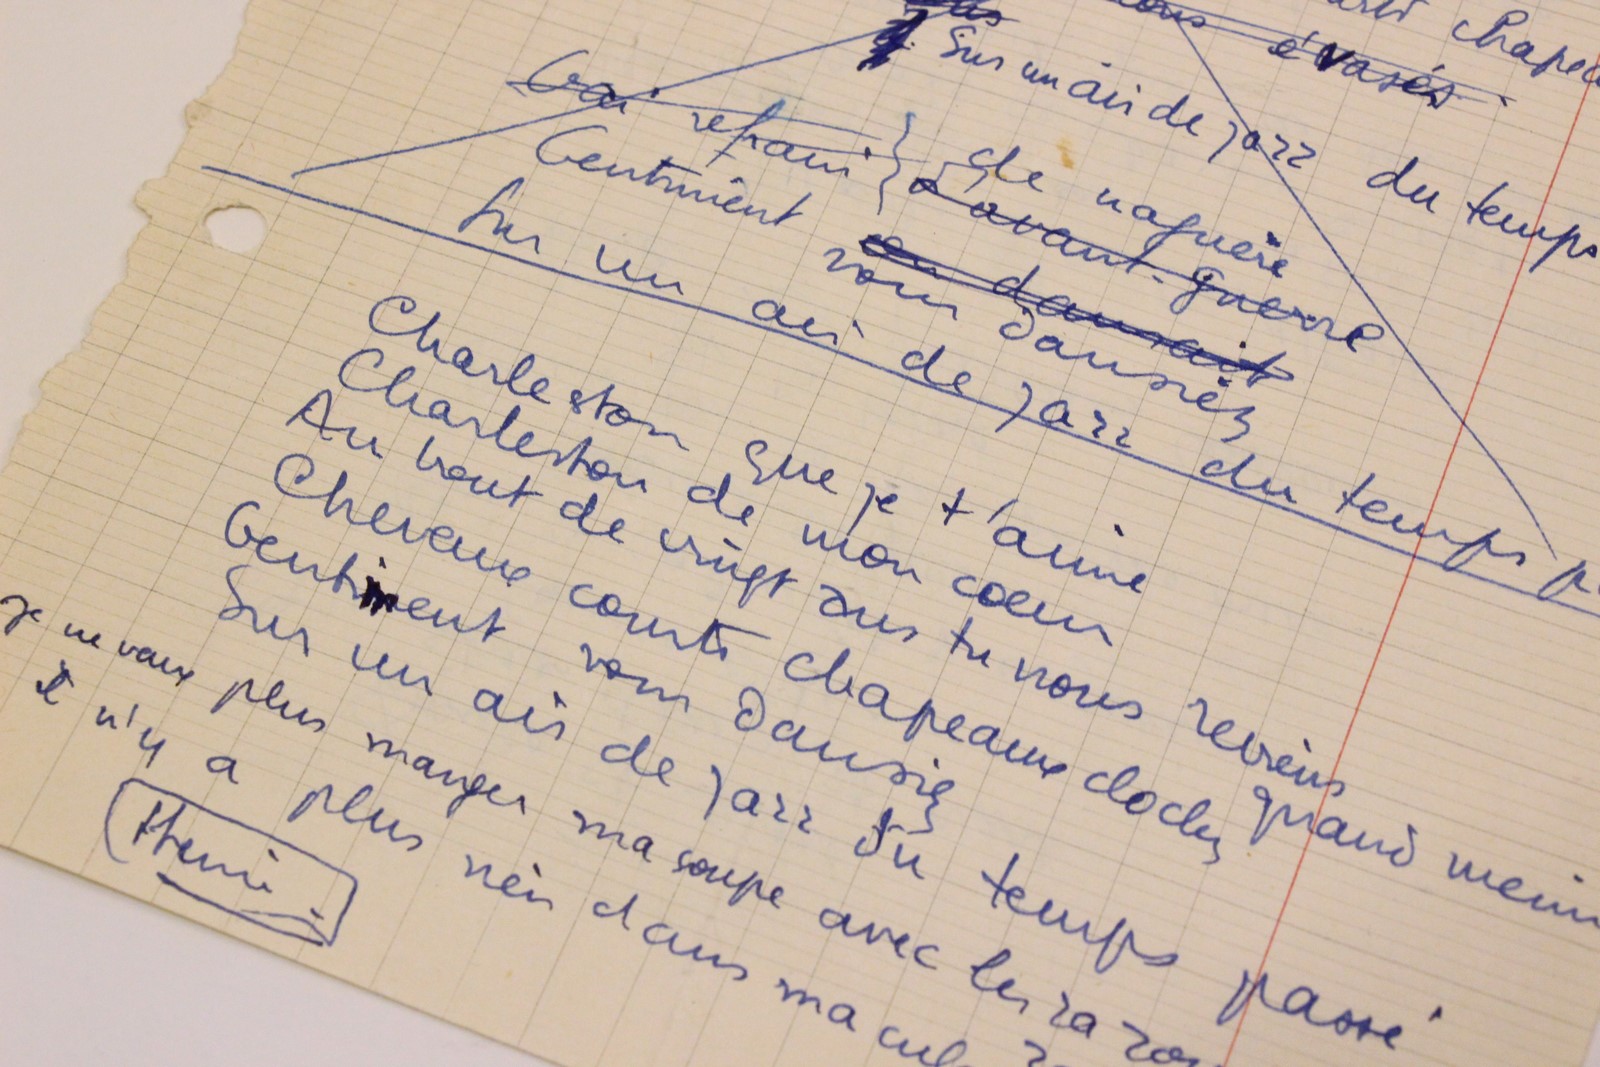 chapea
évasés
Sur un air de jazz du temps
Gai refrain } de naguère
d'avant-guerre
Gentiment
on dansait
vous dansiez
Sur un air de jazz du temps p
Charleston que je t'aime
Charleston de mon coeur
Au bout de vingt ans tu nous reviens quand mêm
Cheveux courts chapeaux cloches
Gentiment vous dansiez
Sur un air de jazz du temps passé
je ne veux plus manger ma soupe avec les
Il n'y a plus rien dans ma
Henri